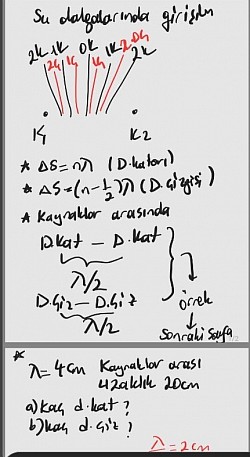 Su dalgalarında girişim
2K 1K 0K 1K 2K
2Ç 1Ç 1Ç 2Ç
K₁ K₂
* ΔS = nλ (D.katarı)
* ΔS = (n - 1/2)λ (D.Çizgisi)
* Kaynaklar arasında
D.Kat — D.Kat
λ/2
D.Çiz — D.Çiz
λ/2
örnek
Sonraki Sayfa
* λ = 4cm Kaynaklar arası
uzaklık 20cm
a) Kaç d.kat?
b) kaç d.çiz?
λ = 2cm